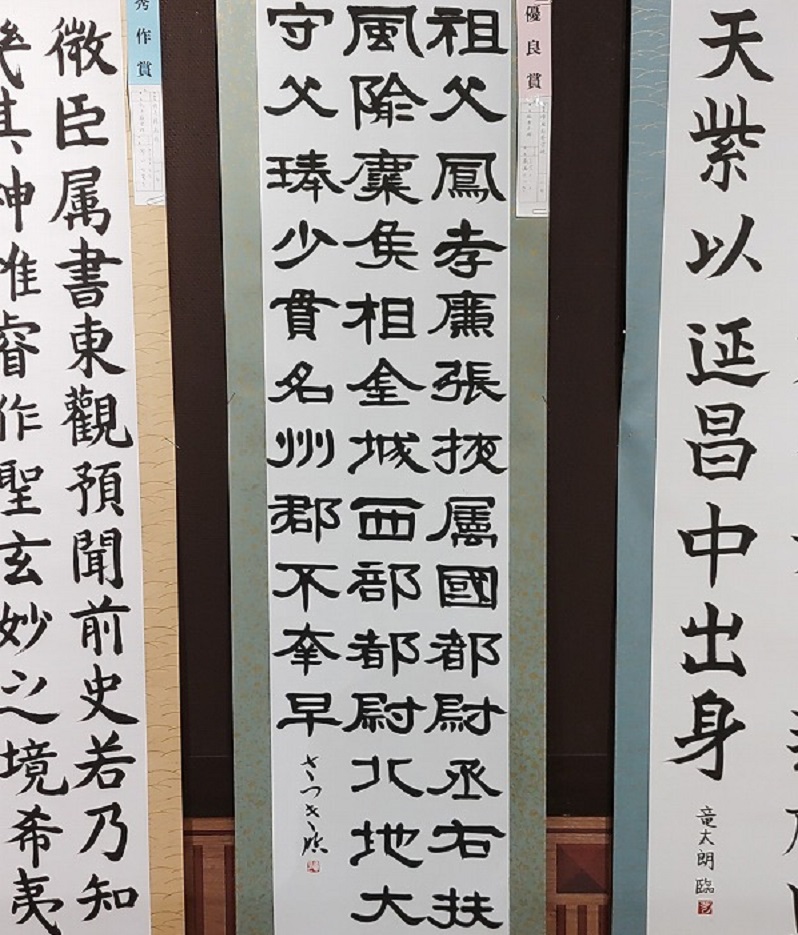 天紫以延昌中出身
竜太朗 臨
優良賞
祖父鳳孝廉張掖属國都尉丞右扶
風隃麋侯相金城西部都尉北地大
守父琫少貫名州郡不幸早
さつき臨
秀作賞
微臣属書東觀預聞前史若乃知
幾其神惟睿作聖玄妙之境希夷